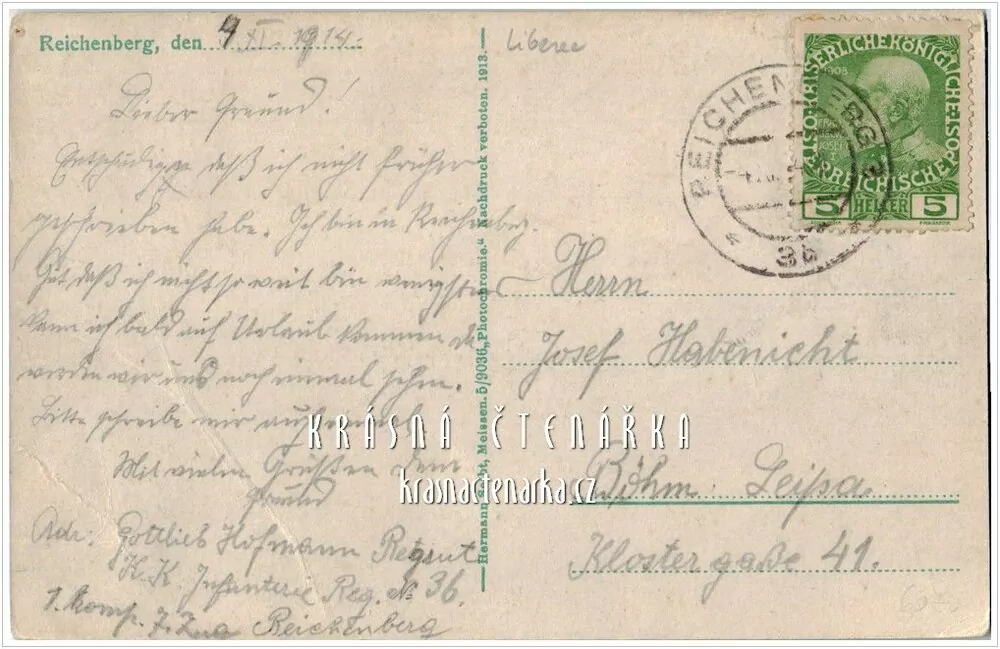 Reichenberg, den 4 XI. 1914.
Lieber Freund!
Entschuldige daß ich nicht früher
geschrieben habe. Ich bin in Reichenberg.
Gut daß ich nicht so weit bin wenigstens
kann ich bald auf Urlaub kommen da
werden wir uns noch einmal sehen.
Bitte schreibe mir auch
Mit vielen Grüßen dein
Freund
Adr: Gottlieb Hofmann Rekrut
K.K. Infanterie Reg. № 36.
1. Komp. 7. Zug Reichenberg
Hermann Seibt, Meissen. 5/9036 „Photochromie.“ Nachdruck verboten. 1913.
Liberec
REICHENBERG
3b
KAISERLICHE KÖNIGLICHE ÖSTERREICHISCHE POST
1908
5 HELLER 5
Herrn
Josef Habenicht
Böhm. Leipa
Klostergaße 41.
KRÁSNÁ ČTENÁŘKA
krasnactenarka.cz